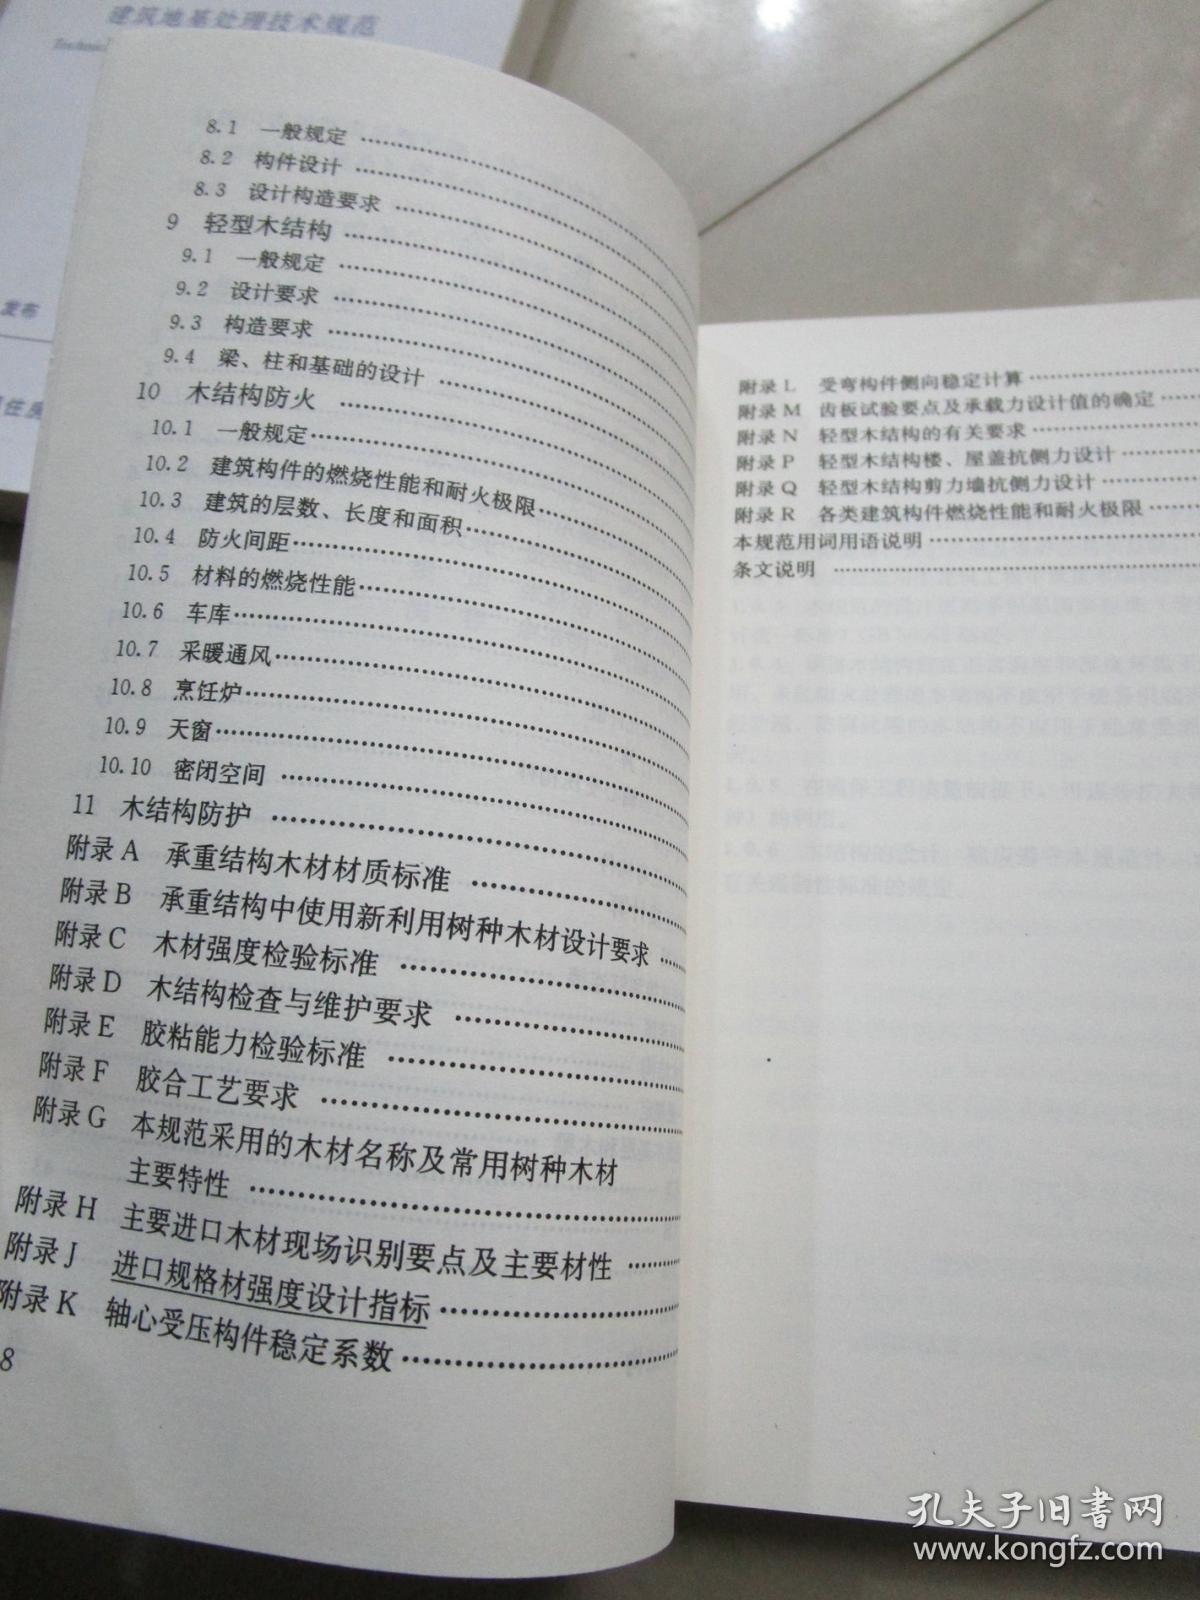 建筑地基处理技术规范
发布
8.1 一般规定
8.2 构件设计
8.3 设计构造要求
9 轻型木结构
9.1 一般规定
9.2 设计要求
9.3 构造要求
9.4 梁、柱和基础的设计
10 木结构防火
10.1 一般规定
10.2 建筑构件的燃烧性能和耐火极限
10.3 建筑的层数、长度和面积
10.4 防火间距
10.5 材料的燃烧性能
10.6 车库
10.7 采暖通风
10.8 烹饪炉
10.9 天窗
10.10 密闭空间
11 木结构防护
附录A 承重结构木材材质标准
附录B 承重结构中使用新利用树种木材设计要求
附录C 木材强度检验标准
附录D 木结构检查与维护要求
附录E 胶粘能力检验标准
附录F 胶合工艺要求
附录G 本规范采用的木材名称及常用树种木材
主要特性
附录H 主要进口木材现场识别要点及主要材性
附录J 进口规格材强度设计指标
附录K 轴心受压构件稳定系数
8
附录L 受弯构件侧向稳定计算
附录M 齿板试验要点及承载力设计值的确定
附录N 轻型木结构的有关要求
附录P 轻型木结构楼、屋盖抗侧力设计
附录Q 轻型木结构剪力墙抗侧力设计
附录R 各类建筑构件燃烧性能和耐火极限
本规范用词用语说明
条文说明
孔夫子旧书网
www.kongfz.com